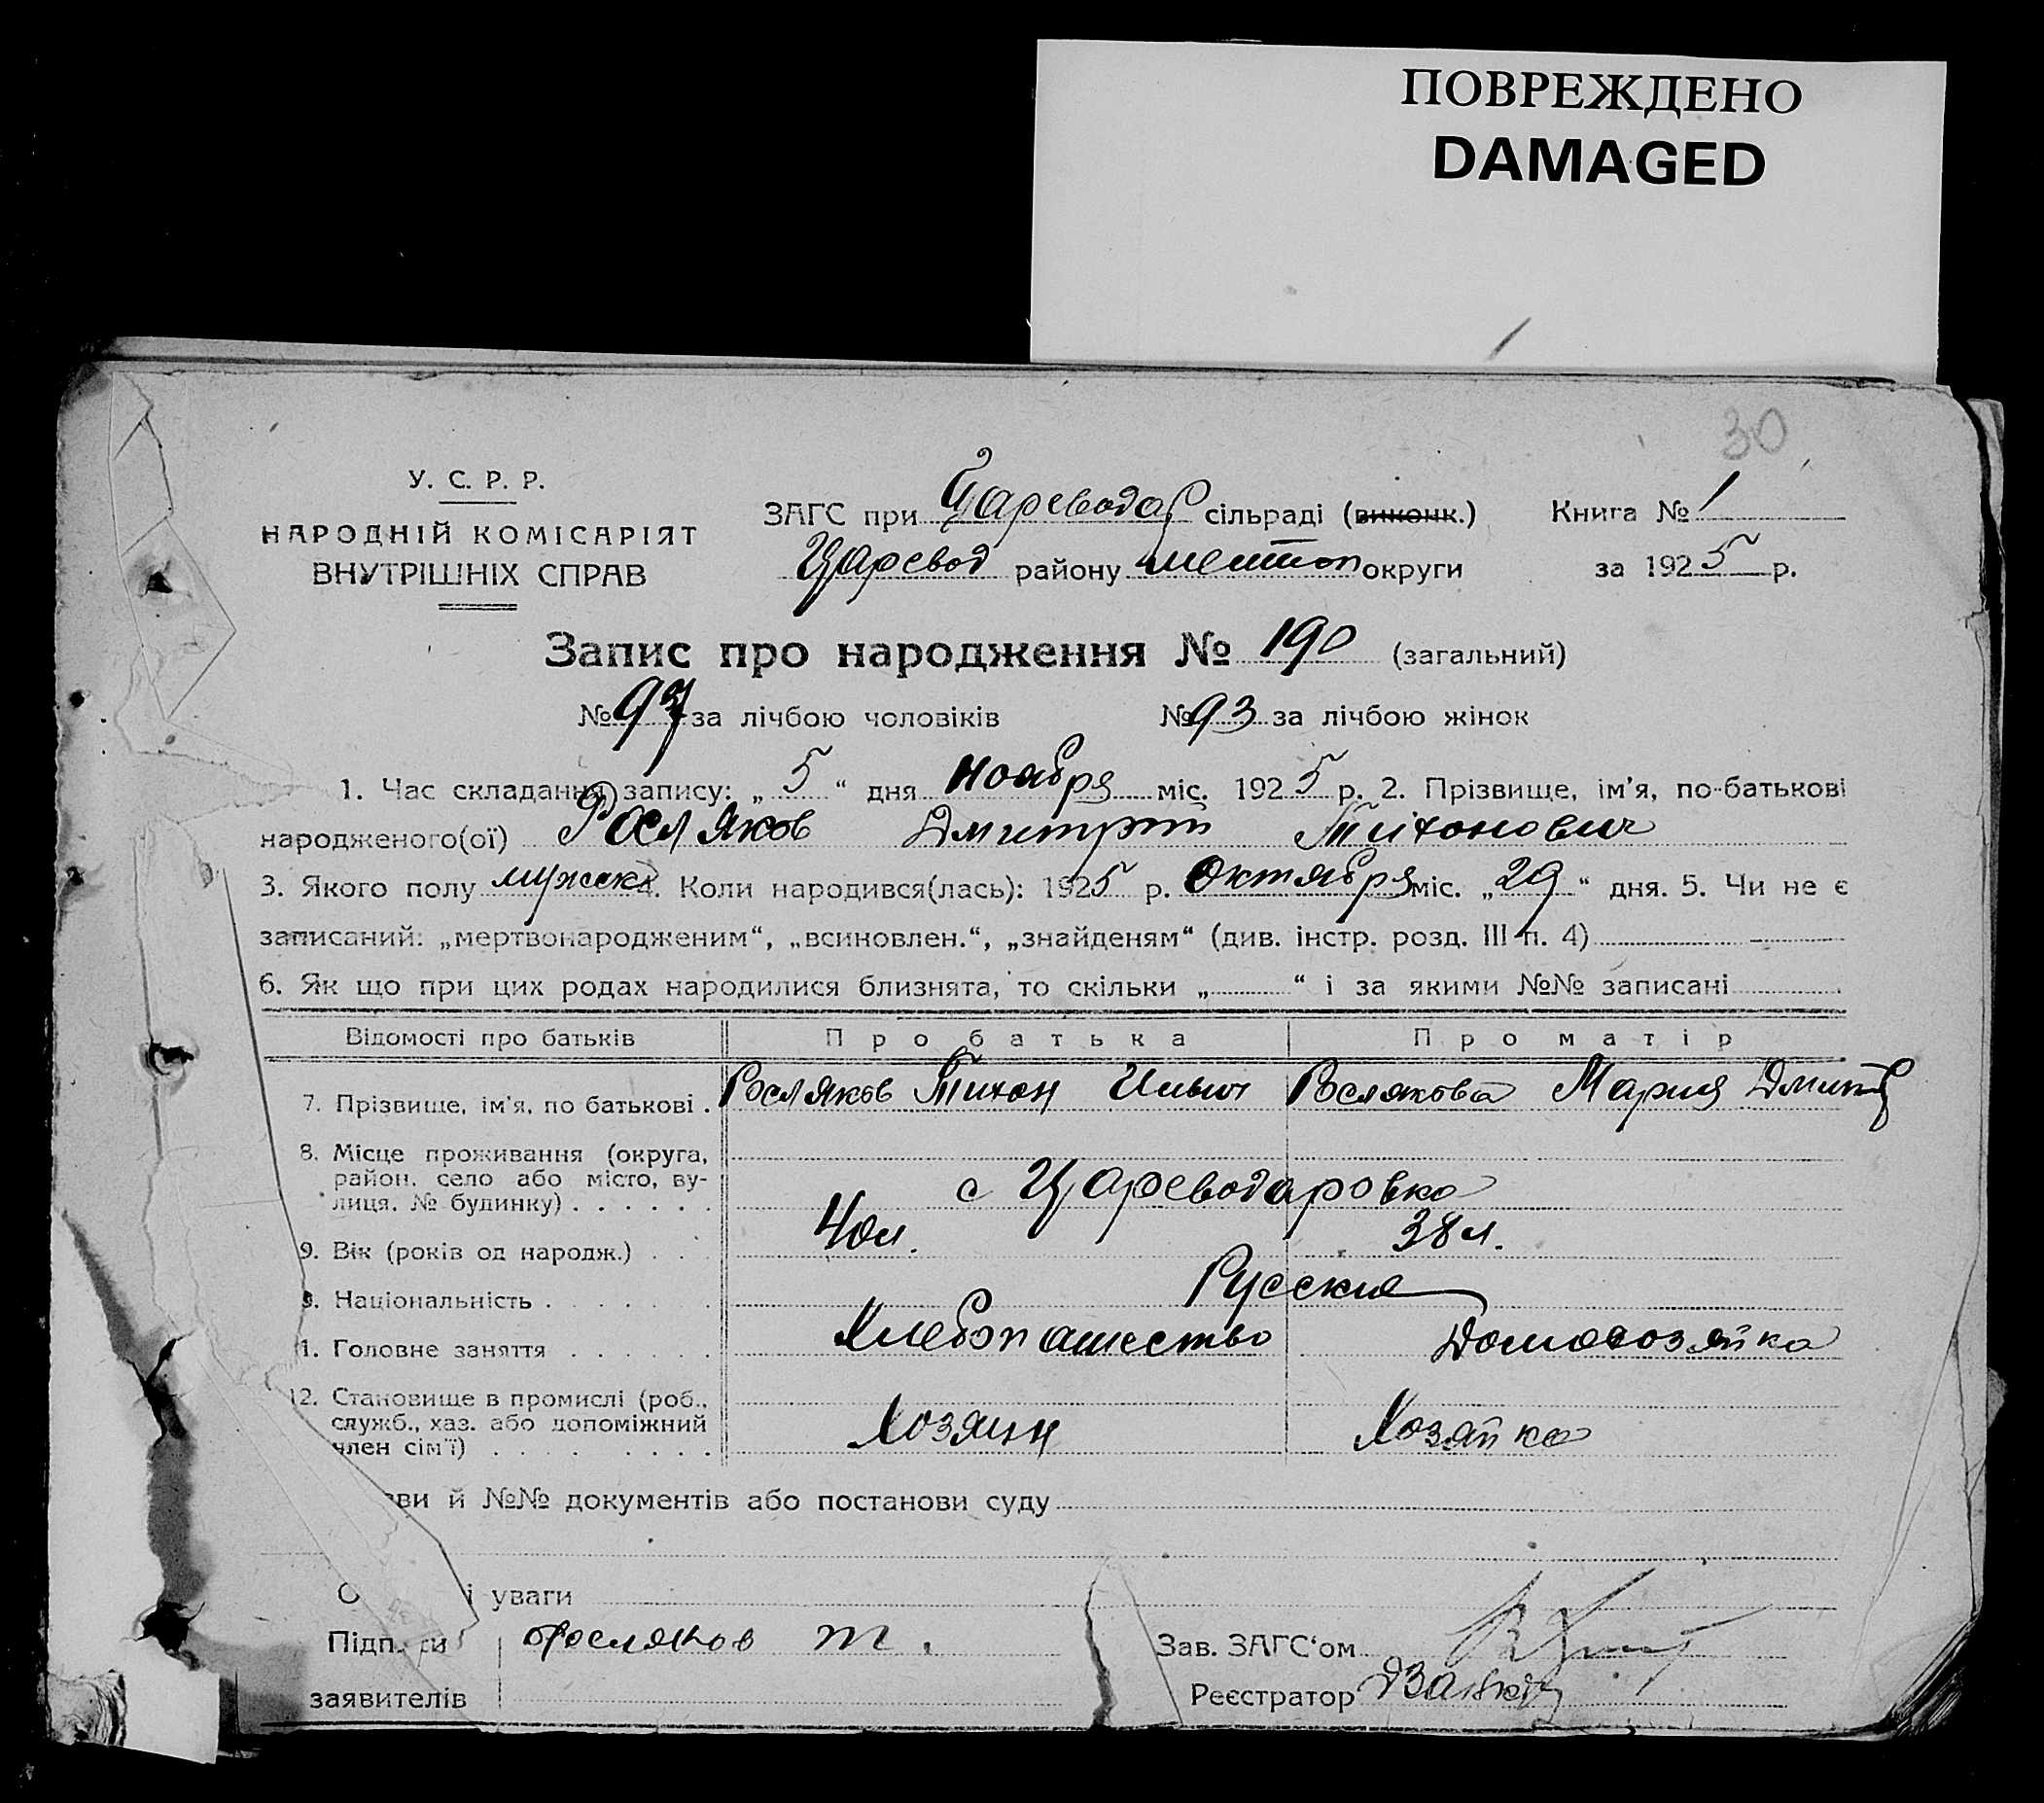 ПОВРЕЖДЕНО
DAMAGED
30
У. С. Р. Р.
НАРОДНІЙ КОМІСАРІЯТ
ВНУТРІШНІХ СПРАВ
ЗАГС при Цареводар сільраді (виконк.) Книга № 1
Царевод району округи за 1925 р.
Запис про народження № 190 (загальний)
№ 97 за лічбою чоловіків № 93 за лічбою жінок
1. Час складання запису: „ 5 “ дня ноября міс. 1925 р. 2. Прізвище, ім'я, по-батькові
народженого(ої) Росляков Дмитрий Тихонович
3. Якого полу мужск 4. Коли народився(лась): 1925 р. Октября міс. „29“ дня. 5. Чи не є
записаний: „мертвонародженим“, „всиновлен.“, „знайденям“ (див. інстр. розд. III п. 4)
6. Як що при цих родах народилися близнята, то скільки „ “ і за якими №№ записані
Відомості про батьків Про батька Про матір
7. Прізвище, ім'я, по батькові . Росляков Тихон Ильич Рослякова Мария Дмит
8. Місце проживання (округа,
район, село або місто, ву-
лиця, № будинку) . . . . . . с Цареводаровка
9. Вік (років од народж.) . . . 40 л. 38 л.
Національність . . . . . . Русские
1. Головне заняття . . . . . . Хлебопашество Домохозяйка
12. Становище в промислі (роб.,
служб., хаз. або допоміжний
член сім'ї) . . . . . . Хозяин Хозяйка
ви й №№ документів або постанови суду
і уваги
Підписи Росляков Т. Зав. ЗАГС'ом
заявителів Реєстратор